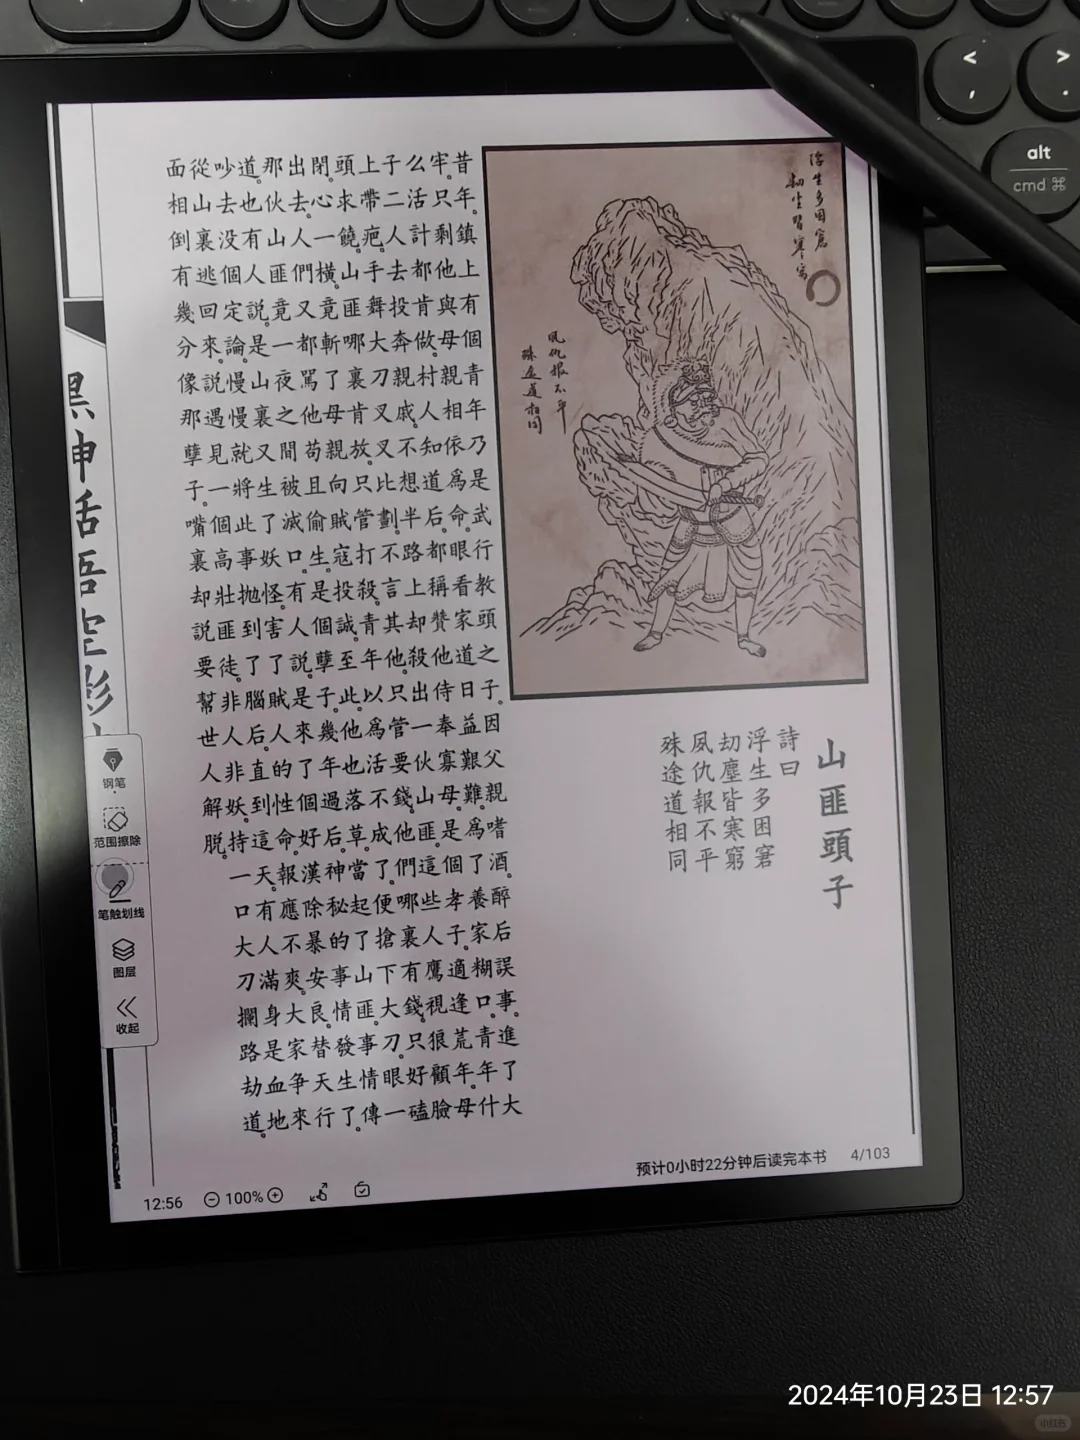 浮生多困窘
劫塵皆寒窮
夙仇報不平
殊途道相同
山匪頭子
詩曰
浮生多困窘
劫塵皆寒窮
夙仇報不平
殊途道相同
昔年鎮上有個青年乃是武行教頭之子。因父親嗜酒。醉后誤事。進了大
牢。只剩他與母親相依爲命。眼看家道日益艱難。爲了養家糊口。青年什
么活計都肯做。村人知道后。都稱贊他侍奉寡母。是個孝子。適逢荒年。母
子二人去投奔親戚。不想半路上却殺出一伙山匪。這些人鷹視狼顧。臉
上帶疤。手舞大刀叉叉比劃。不言其他。只管要錢。他們哪裏有錢。只好磕
頭求饒。山匪哪裏肯放。只管打殺。青年以爲活不成了。便搶下大刀。眼一
閉。心一橫。竟斬了母親。向賊寇投誠。至此。他也落草。當了山匪。事情傳
出去。人們竟都罵他苟且偷生。是個孽子。幾年過后。神秘的事情發生了。
那伙山匪一夜之間被滅口。有人説。是來了個好漢。除暴安良。替天行
道。也有人説。是山裏又生了妖怪。害了賊人的性命。報應不爽。大家争來
吵去。没個定論。慢慢就將此事抛到了腦后。直到這天。有人滿身是血地
從山裏逃回來。説遇見一個高壯匪徒。非人非妖。持一口大刀。攔路劫道。
面相倒有幾分像那孽子。嘴裏却説要幫世人解脱。
黑神话悟空影
钢笔
范围擦除
笔触划线
图层
收起
12:56
100%
预计0小时22分钟后读完本书
4/103
<
,
>
.
alt
cmd ⌘
2024年10月23日 12:57
小红书